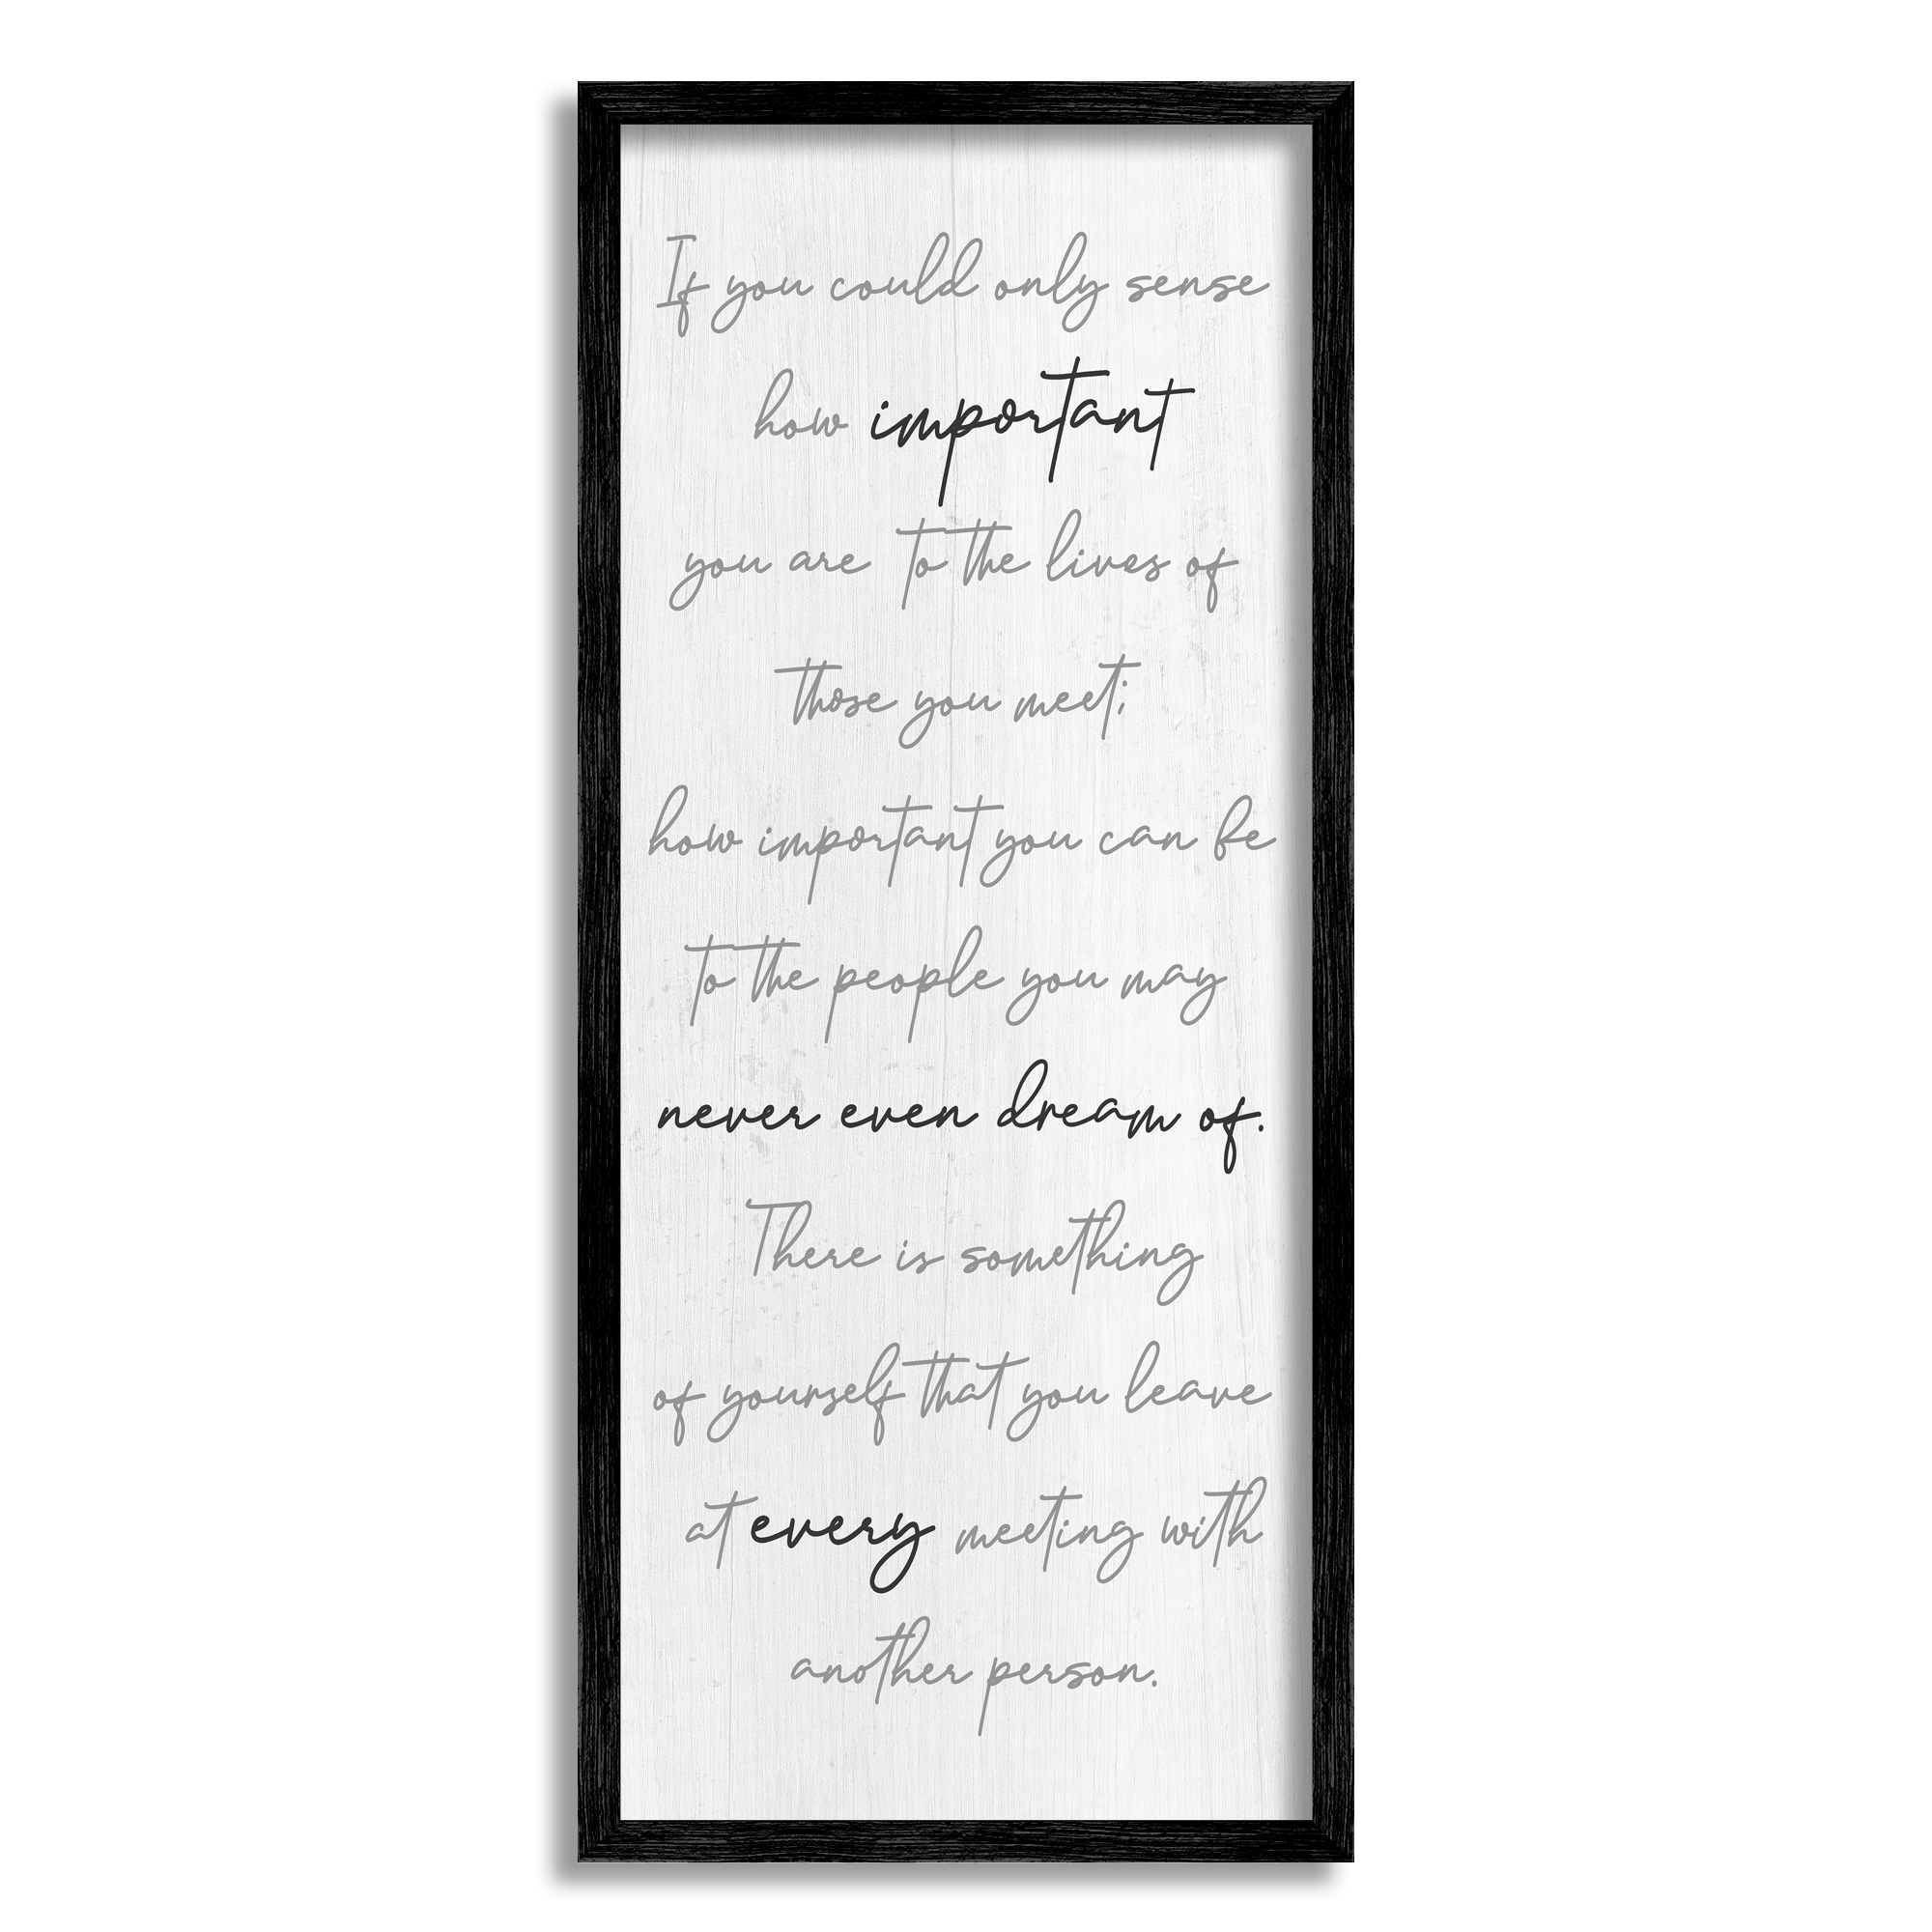 If you could only sense
how important
you are to the lives of
those you meet;
how important you can be
to the people you may
never even dream of.
There is something
of yourself that you leave
at every meeting with
another person.